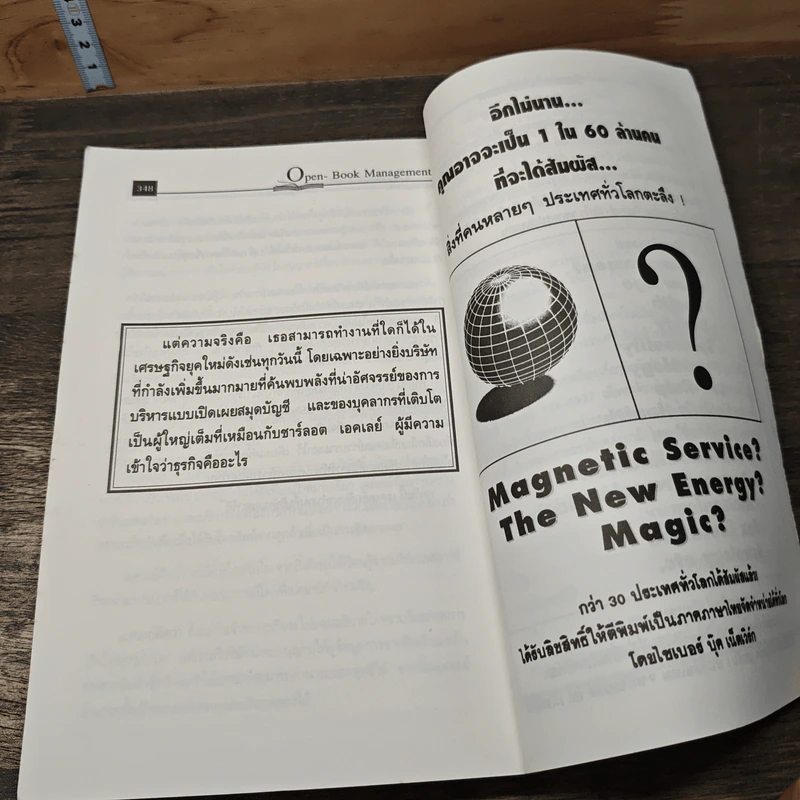 3
2
1
348
Open- Book Management
แต่ความจริงคือ เธอสามารถทำงานที่ใดก็ได้ใน
เศรษฐกิจยุคใหม่ดังเช่นทุกวันนี้ โดยเฉพาะอย่างยิ่งบริษัท
ที่กำลังเพิ่มขึ้นมากมายที่ค้นพบพลังที่น่าอัศจรรย์ของการ
บริหารแบบเปิดเผยสมุดบัญชี และของบุคลากรที่เติบโต
เป็นผู้ใหญ่เต็มที่เหมือนกับชาร์ลอต เอคเลย์ ผู้มีความ
เข้าใจว่าธุรกิจคืออะไร
อีกไม่นาน...
คุณอาจจะเป็น 1 ใน 60 ล้านคน
ที่จะได้สัมผัส...
สิ่งที่คนหลายๆ ประเทศทั่วโลกตะลึง !
?
Magnetic Service?
The New Energy?
Magic?
กว่า 30 ประเทศทั่วโลกได้สัมผัสแล้ว!
ได้รับลิขสิทธิ์ให้ตีพิมพ์เป็นภาคภาษาไทยจัดจำหน่ายได้ทั่วโลก
โดยไซเบอร์ บุ๊ค เน็ตเวิร์ก